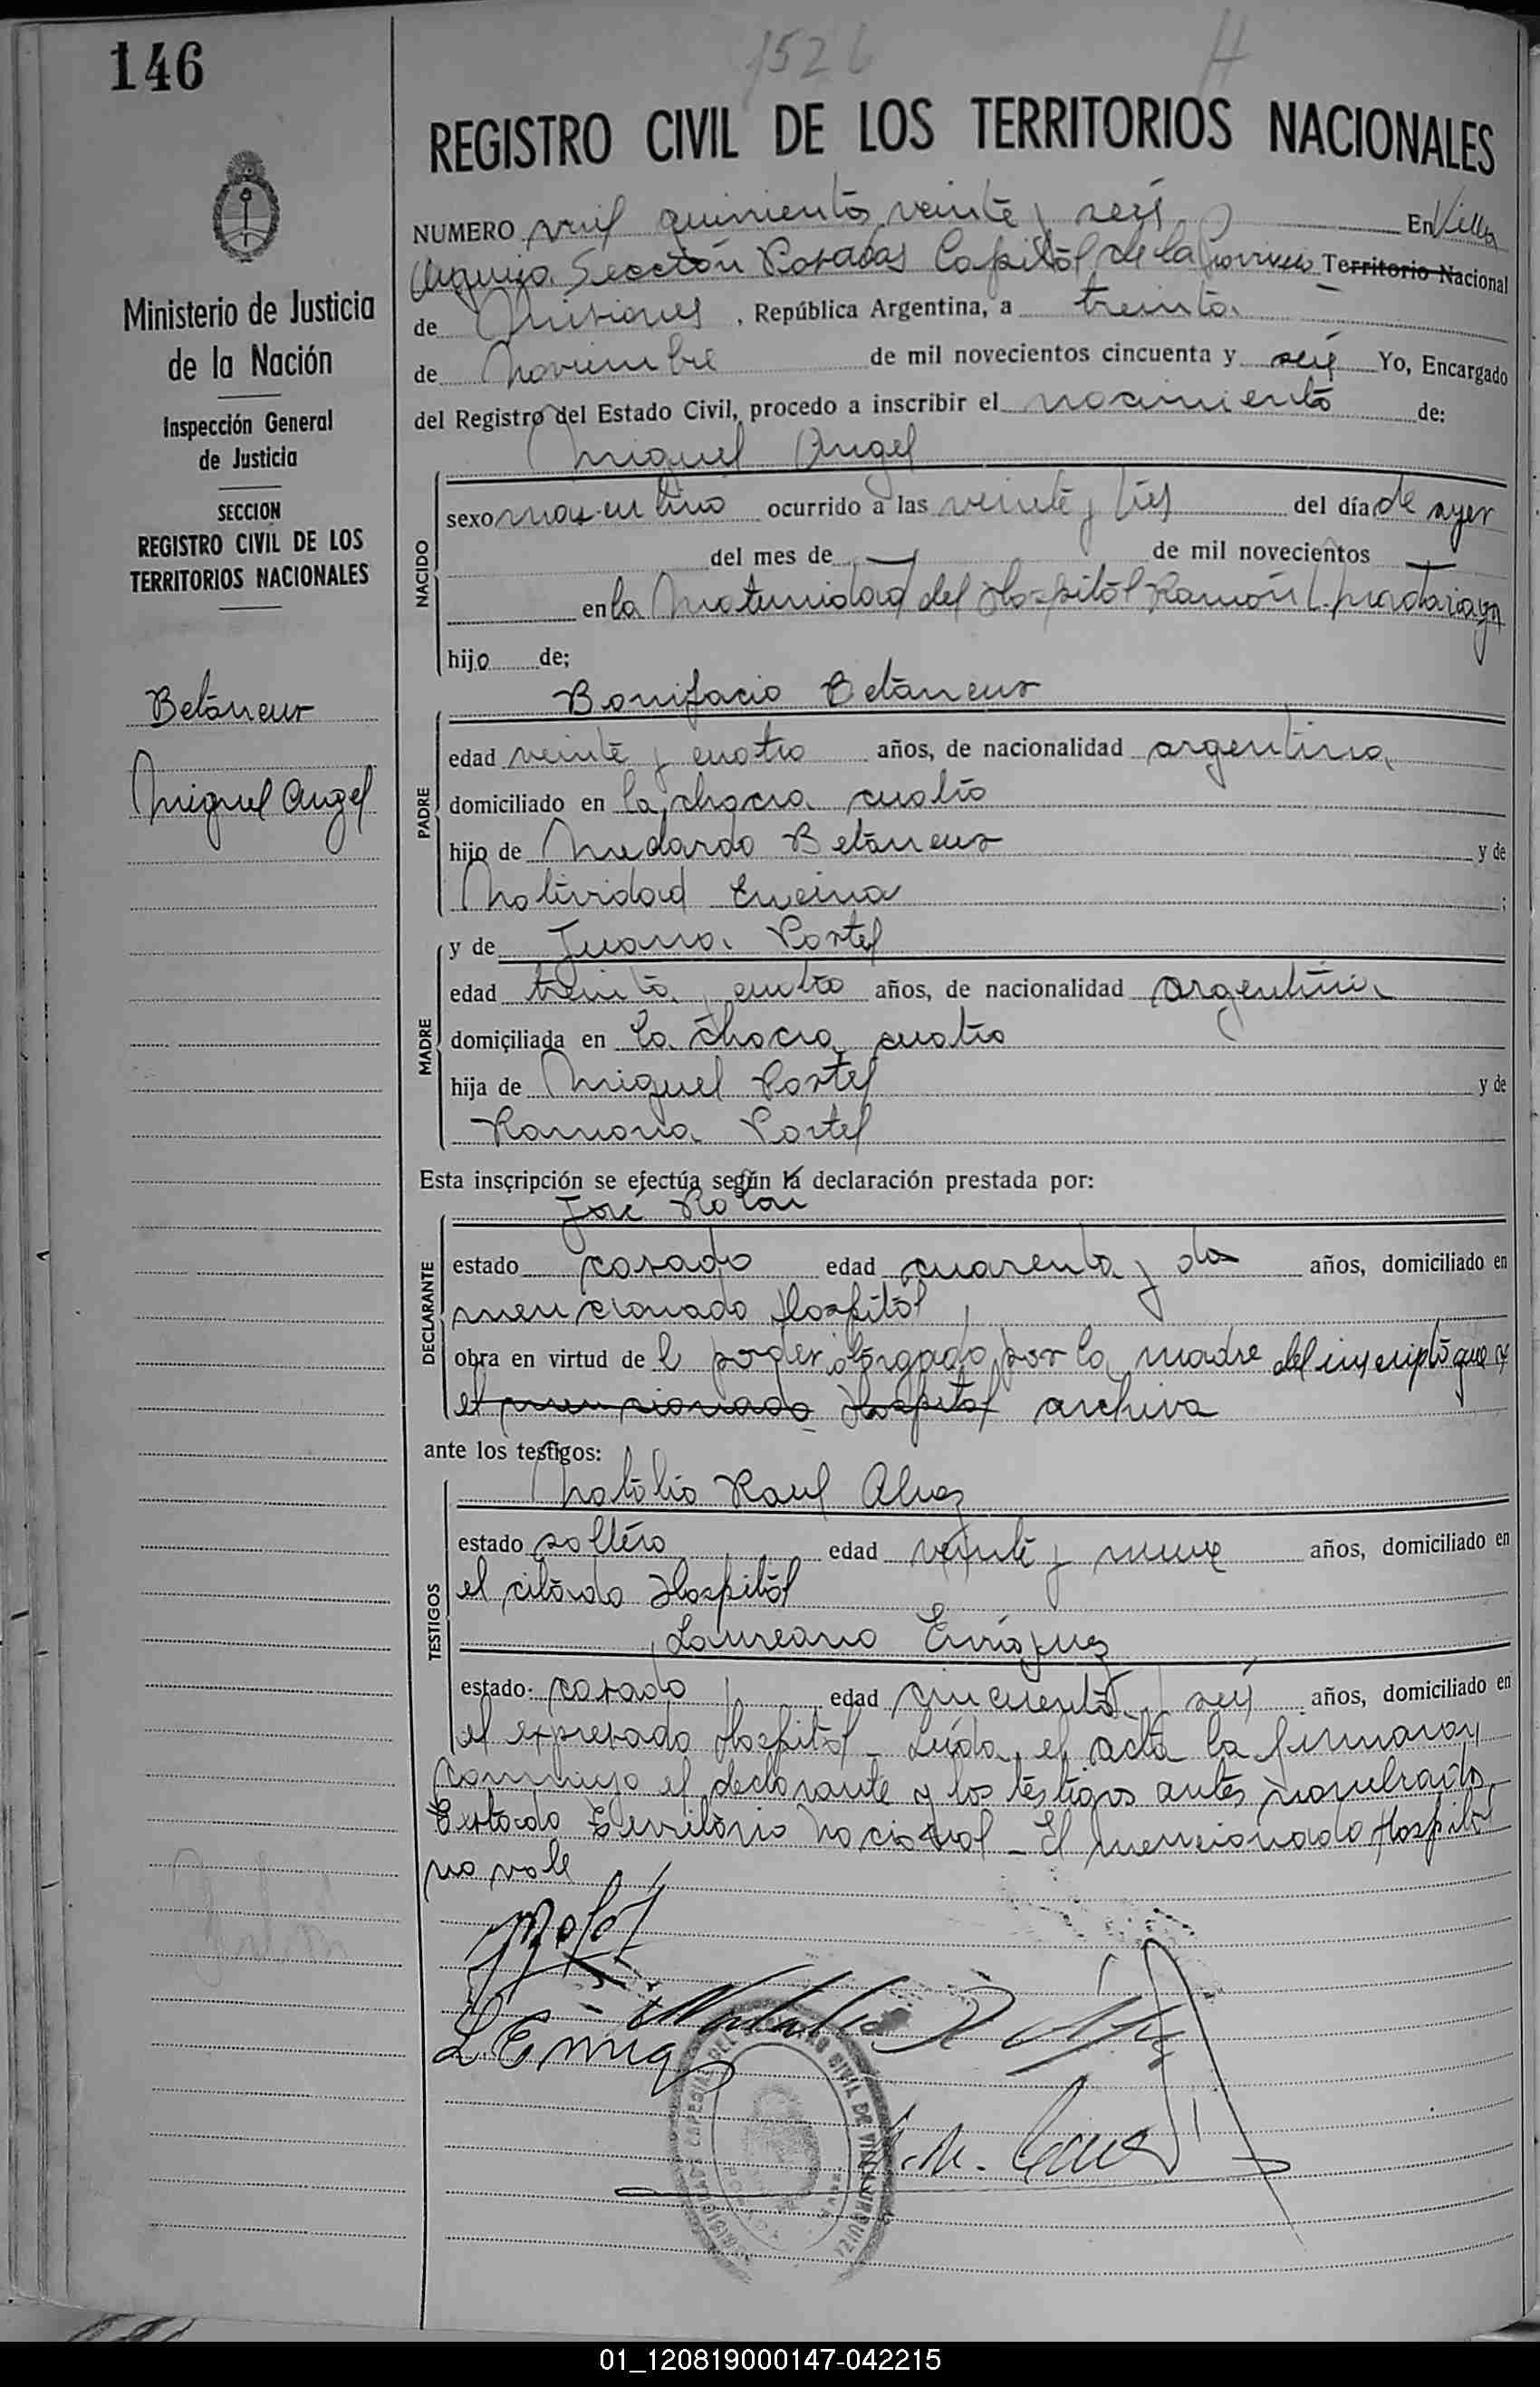 146
1526
H
REGISTRO CIVIL DE LOS TERRITORIOS NACIONALES
Ministerio de Justicia
de la Nación
Inspección General
de Justicia
SECCION
REGISTRO CIVIL DE LOS
TERRITORIOS NACIONALES
Betáncur
Miguel Angel
NUMERO mil quinientos veinte y seis En Villa
Urquiza Sección Posadas Capital de la Provincia Territorio Nacional
de Misiones, República Argentina, a treinta
de Noviembre de mil novecientos cincuenta y seis Yo, Encargado
del Registro del Estado Civil, procedo a inscribir el nacimiento de:
Miguel Angel
NACIDO
sexo masculino ocurrido a las veinte y tres del día de ayer
del mes de — de mil novecientos —
en la Maternidad del Hospital Ramón Madariaga
hijo de;
PADRE
Bonifacio Betáncur
edad veinte y cuatro años, de nacionalidad argentina
domiciliado en la chacra cuatro
hijo de Medardo Betáncur y de
Natividad Encina ;
MADRE
y de Juana Portel
edad treinta y cuatro años, de nacionalidad argentina
domiciliada en la chacra cuatro
hija de Miguel Portel y de
Ramona Portel
Esta inscripción se efectúa según la declaración prestada por:
DECLARANTE
José
estado casado edad cuarenta y dos años, domiciliado en
mencionado Hospital
obra en virtud de l poder otorgado por la madre del inscripto que se
el mencionado Hospital archiva
ante los testigos:
TESTIGOS
Natalio Raul Alvez
estado soltero edad veinte y nueve años, domiciliado en
el citado Hospital
Laureano Enríquez
estado: casado edad cincuenta y seis años, domiciliado en
el expresado Hospital - Leída el acta la firmaron
conmigo el declarante y los testigos antes nombrados.
Testado Territorio Nacional - El mencionado Hospital
no vale
01_120819000147-042215